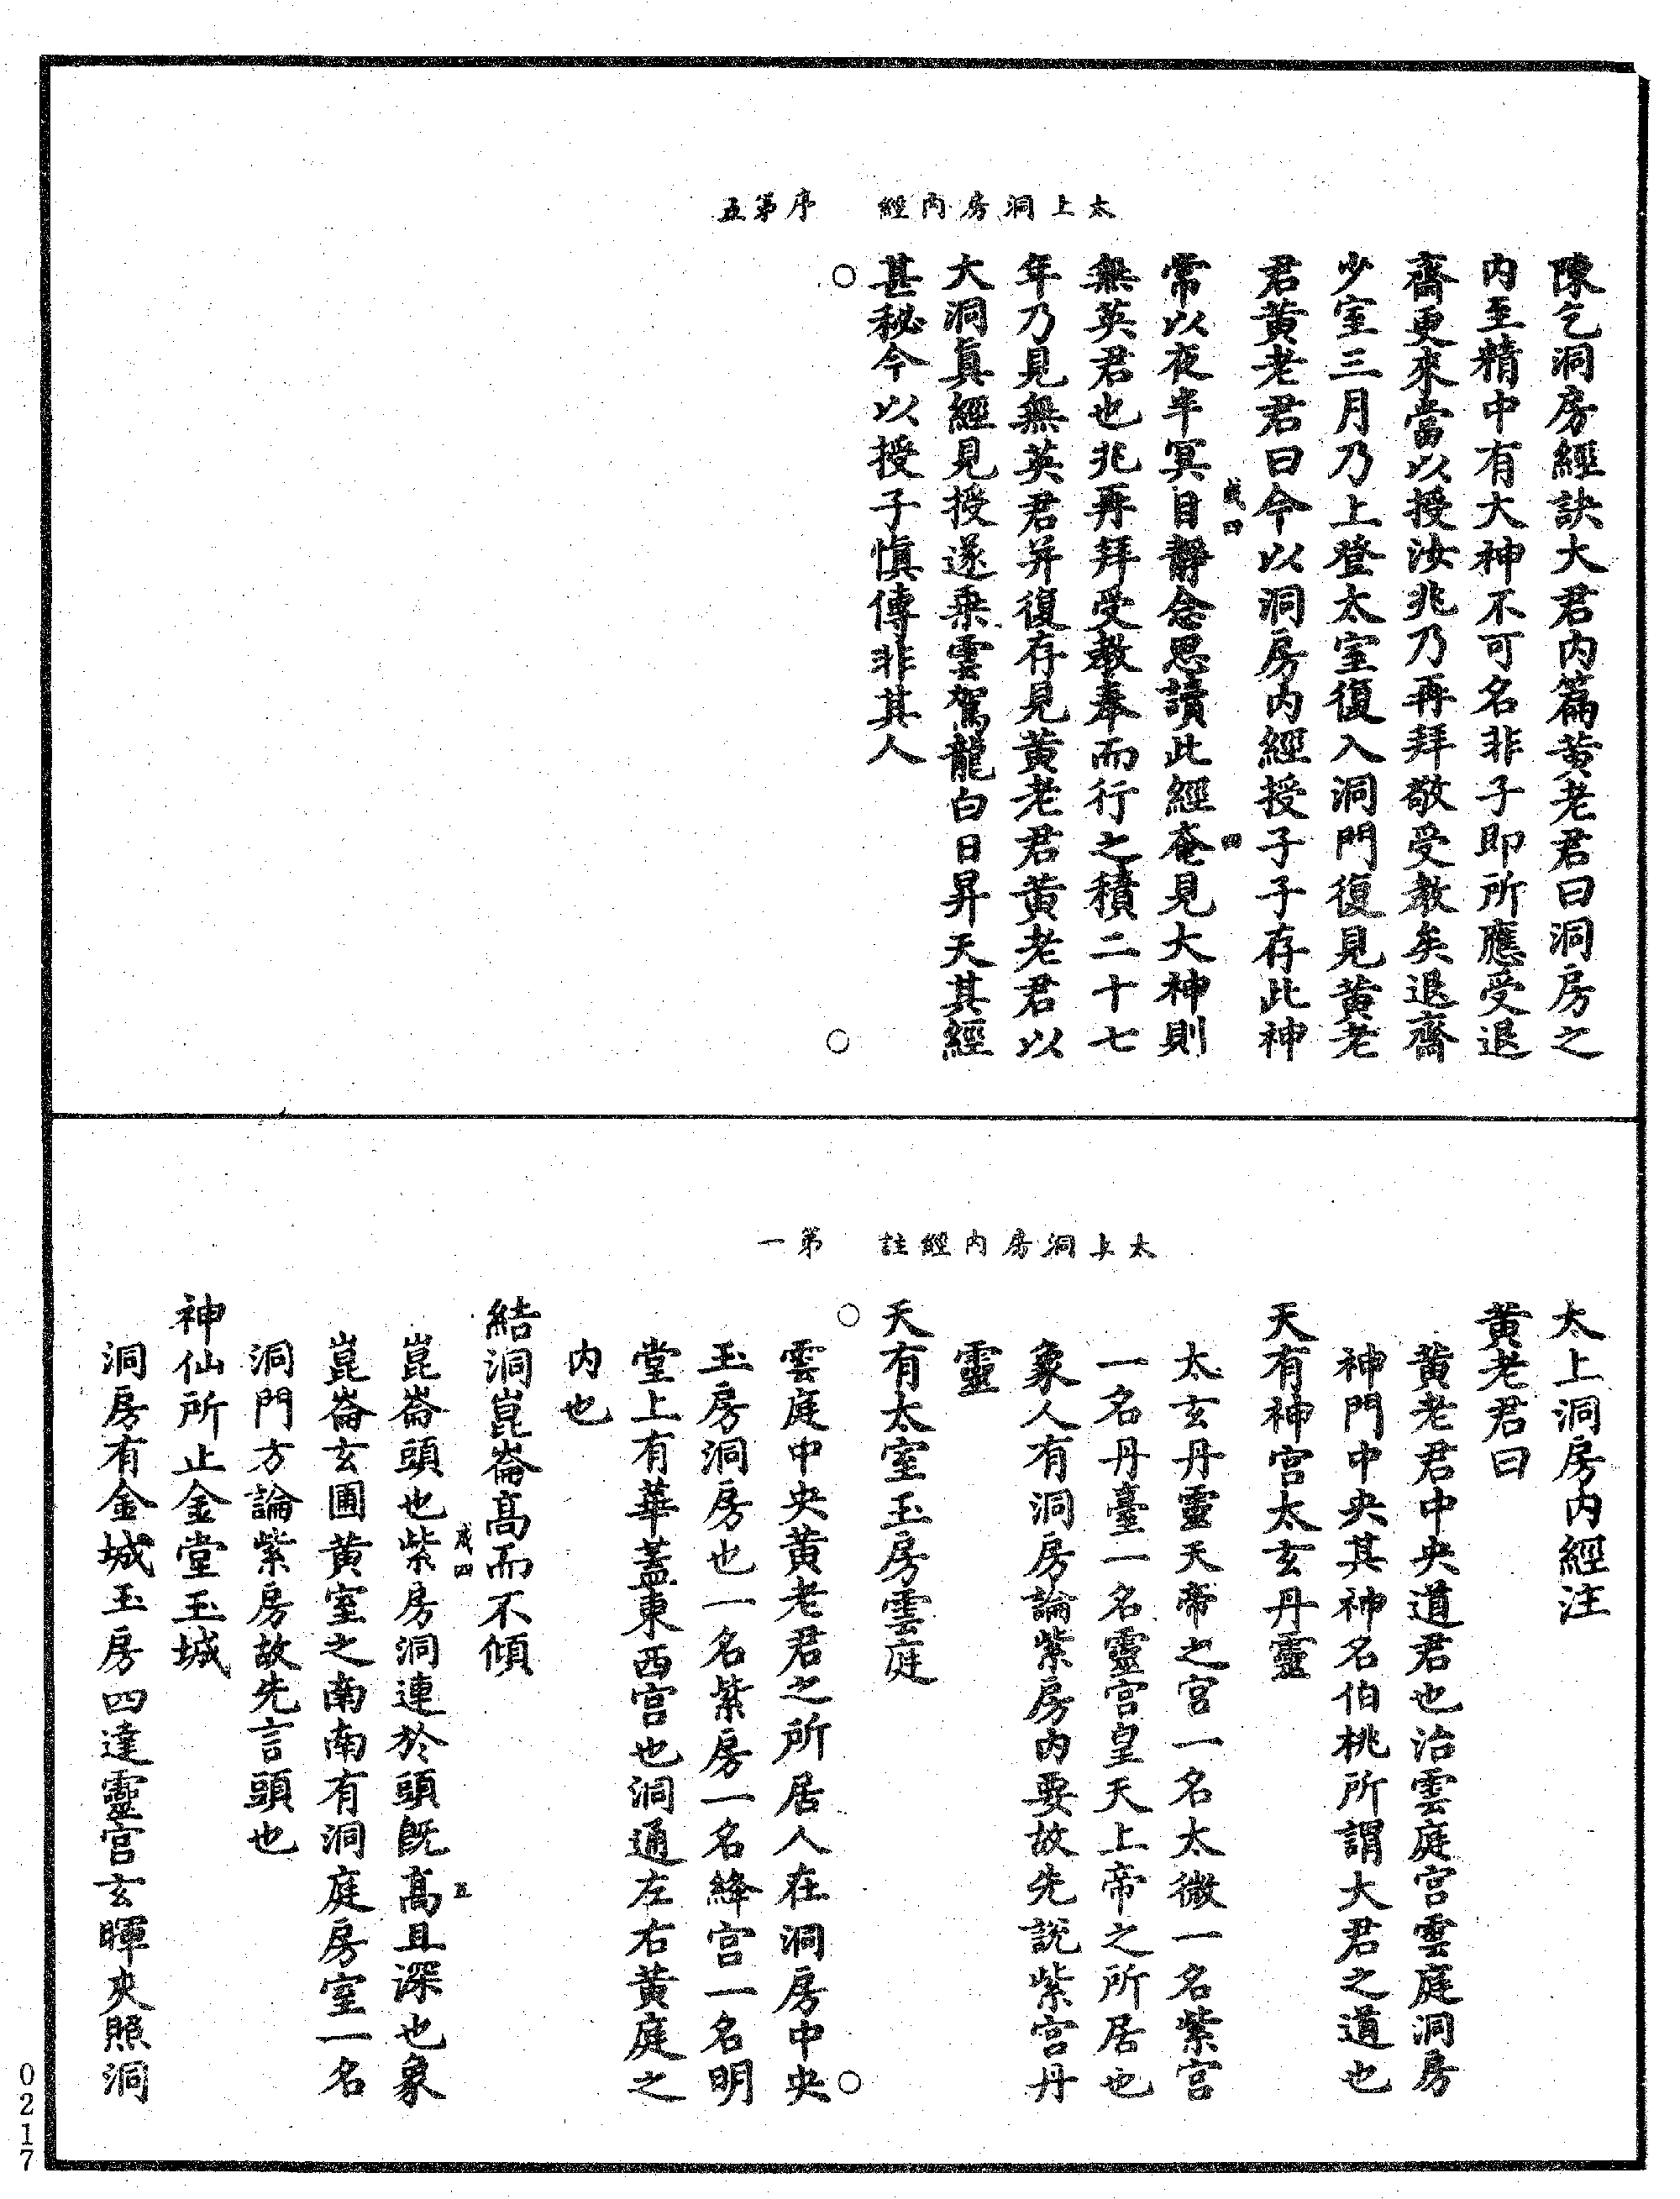 太上洞房内經　序第五
陳乞洞房經訣大君内篇黄老君曰洞房之
内至精中有大神不可名非子即所應受退
齋更來當以授汝兆乃再拜敬受教矣退齋
少室三月乃上登太室復入洞門復見黄老
君黄老君曰今以洞房内經授子子存此神
四
常以夜半冥目靜念思讀此經奄見大神則
無英君也兆再拜受教奉而行之積二十七
年乃見無英君并復存見黄老君黄老君以
大洞真經見授遂乗雲駕龍白日昇天其經
甚秘今以授子慎傳非其人
太上洞房内經註　第一
太上洞房内經注
黄老君曰
黄老君中央道君也治雲庭宫雲庭洞房
神門中央其神名伯桃所謂大君之道也
天有神宫太玄丹靈
太玄丹靈天帝之宫一名太微一名紫宫
一名丹臺一名靈宫皇天上帝之所居也
象人有洞房論紫房内要故先説紫宫丹
靈
天有太室玉房雲庭
雲庭中央黄老君之所居人在洞房中央
玉房洞房也一名紫房一名絳宫一名明
堂上有華蓋東西宫也洞通左右黄庭之
内也
結洞崑崙高而不傾
五
崑崙頭也紫房洞連於頭既高且深也象
崑崙玄圃黄室之南南有洞庭房室一名
洞門方論紫房故先言頭也
神仙所止金堂玉城
洞房有金城玉房四達靈宫玄暉夾照洞
0217